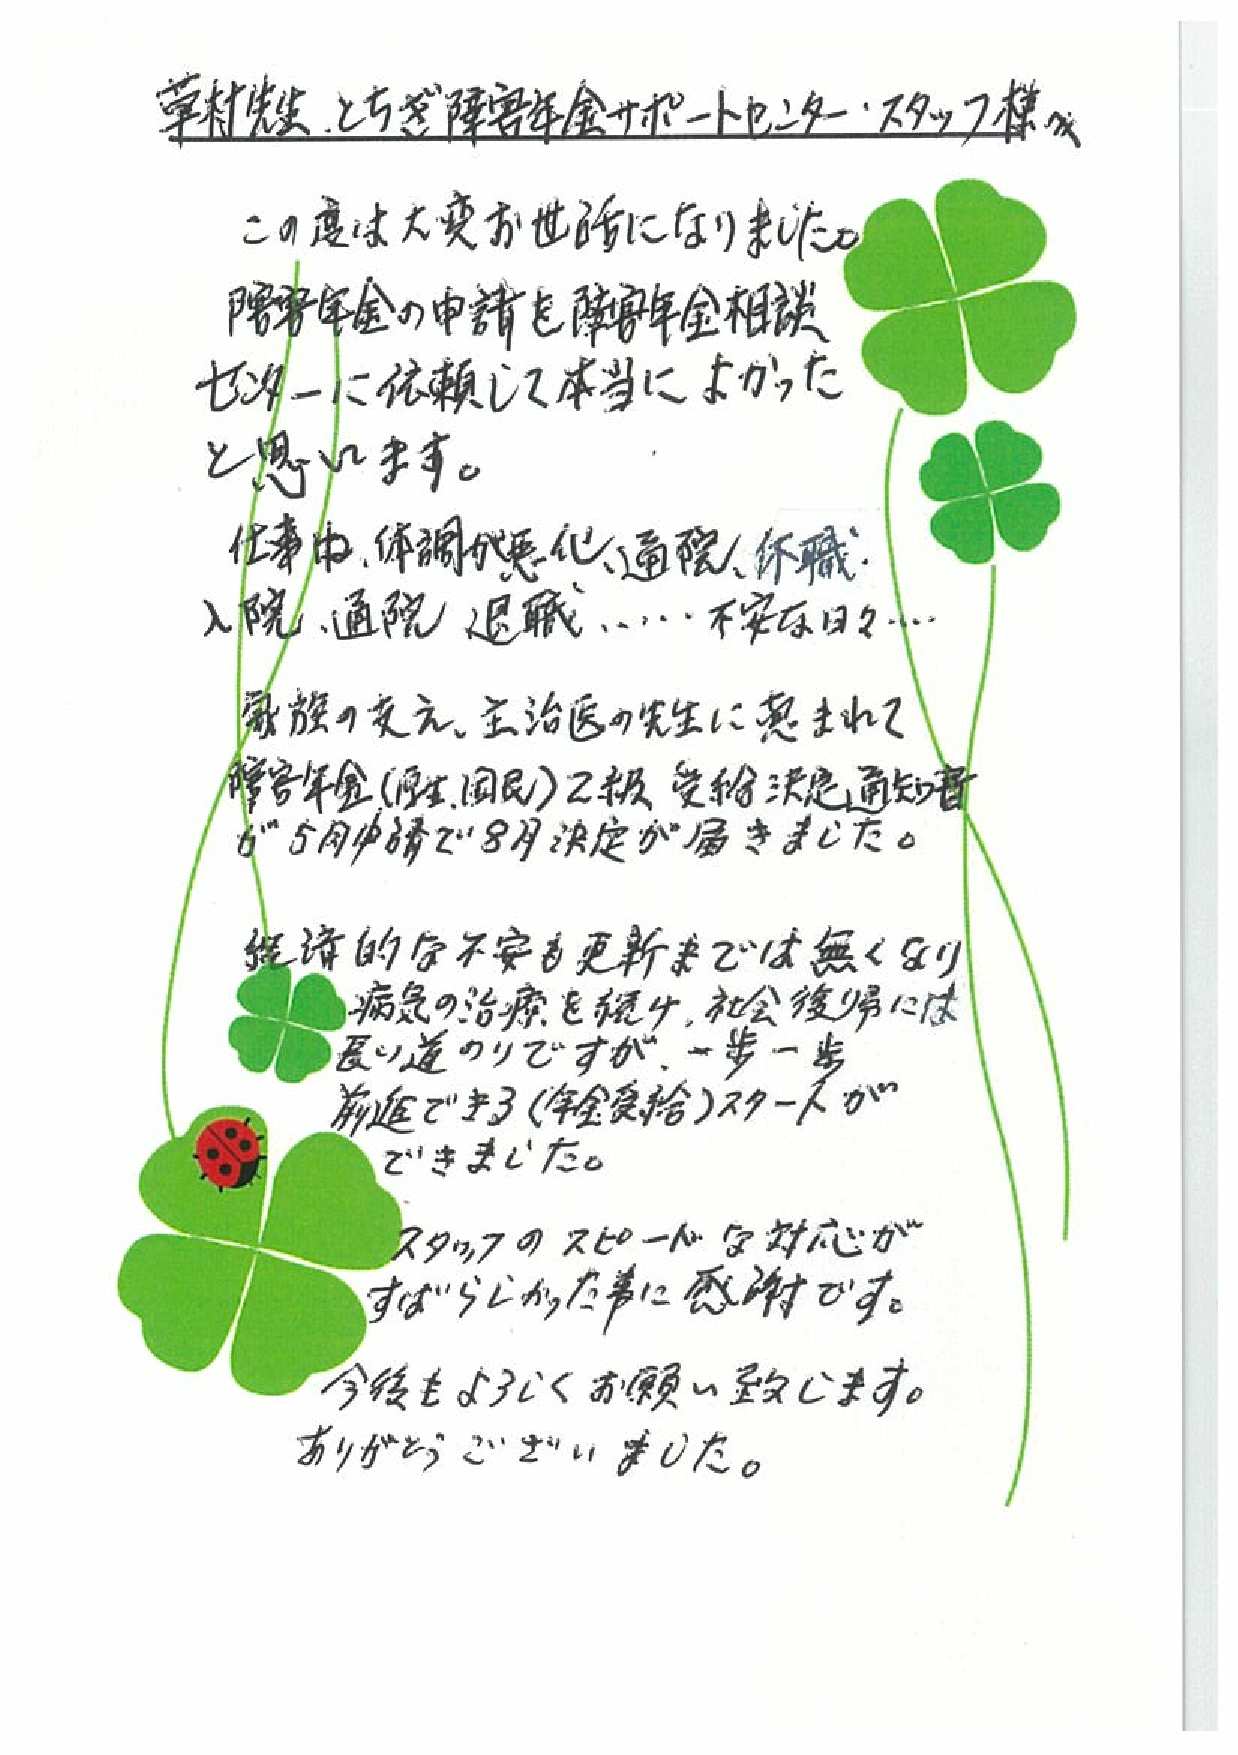 草村先生、とちぎ障害年金サポートセンター・スタッフ様へ
この度は大変お世話になりました。
障害年金の申請を障害年金相談
センターに依頼して本当によかった
と思います。
仕事中、体調が悪化、通院、休職、
入院、通院、退職、‥‥不安な日々‥‥
家族の支え、主治医の先生に恵まれて
障害年金(厚生、国民)2級、受給決定通知書
が5月申請で8月決定が届きました。
経済的な不安も更新までは無くなり
病気の治療を続け、社会復帰には
長い道のりですが、一歩一歩
前進できる(年金受給)スタートが
できました。
スタッフのスピードな対応が
すばらしかった事に感謝です。
今後もよろしくお願い致します。
ありがとうございました。